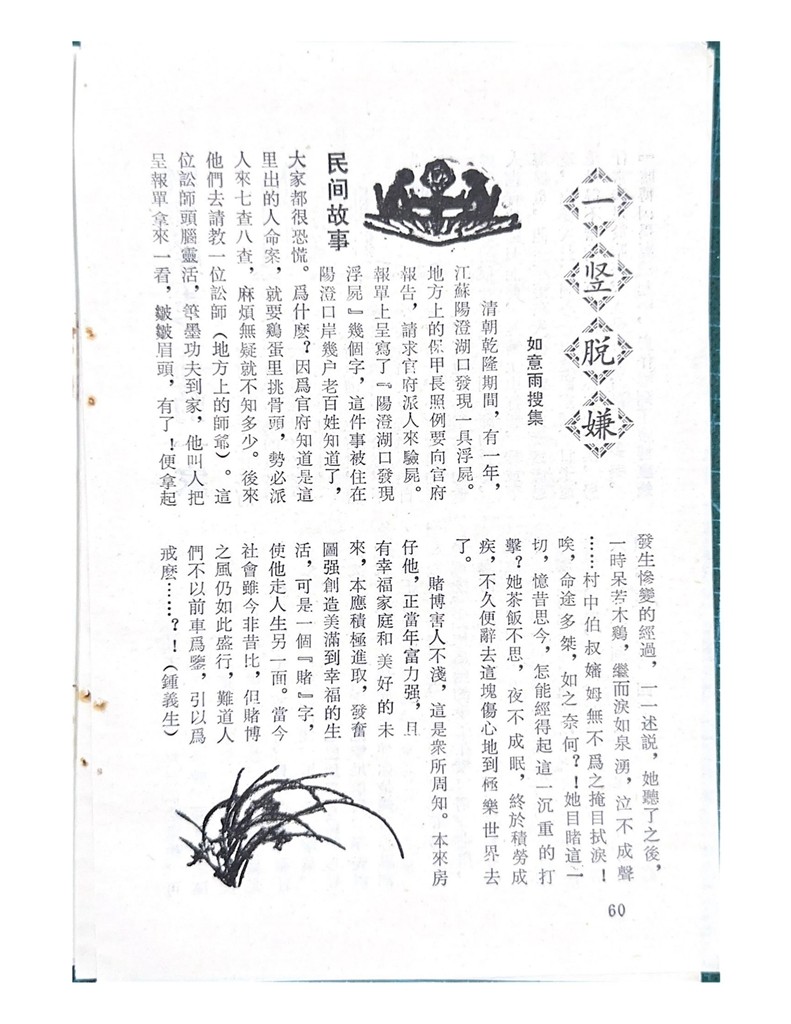 一竖脱嫌
如意雨搜集
民间故事
清朝乾隆期間，有一年，
江蘇陽澄湖口發現一具浮屍。
地方上的保甲長照例要向官府
報告，請求官府派人來驗屍。
報單上呈寫了『陽澄湖口發現
浮屍』幾個字，這件事被住在
陽澄口岸幾户老百姓知道了，
大家都很恐慌。爲什麽？因爲官府知道是這
里出的人命案，就要鷄蛋里挑骨頭，勢必派
人來七查八查，麻煩無疑就不知多少。後來
他們去請教一位訟師（地方上的師爺）。這
位訟師頭腦靈活，筆墨功夫到家，他叫人把
呈報單拿來一看，皺皺眉頭，有了！便拿起
發生慘變的經過，一一述説，她聽了之後，
一時呆若木鷄，繼而淚如泉湧，泣不成聲
……村中伯叔嬸姆無不爲之掩目拭淚！
唉，命途多桀，如之奈何？！她目睹這一
切，憶昔思今，怎能經得起這一沉重的打
擊？她茶飯不思，夜不成眠，終於積勞成
疾，不久便辭去這塊傷心地到極樂世界去
了。
賭博害人不淺，這是衆所周知。本來房
仔他，正當年富力强，且
有幸福家庭和美好的未
來，本應積極進取，發奮
圖强創造美滿到幸福的生
活，可是一個『賭』字，
使他走人生另一面。當今
社會雖今非昔比，但賭博
之風仍如此盛行，難道人
們不以前車爲鑒，引以爲
戒麽……？！（鍾義生）
60